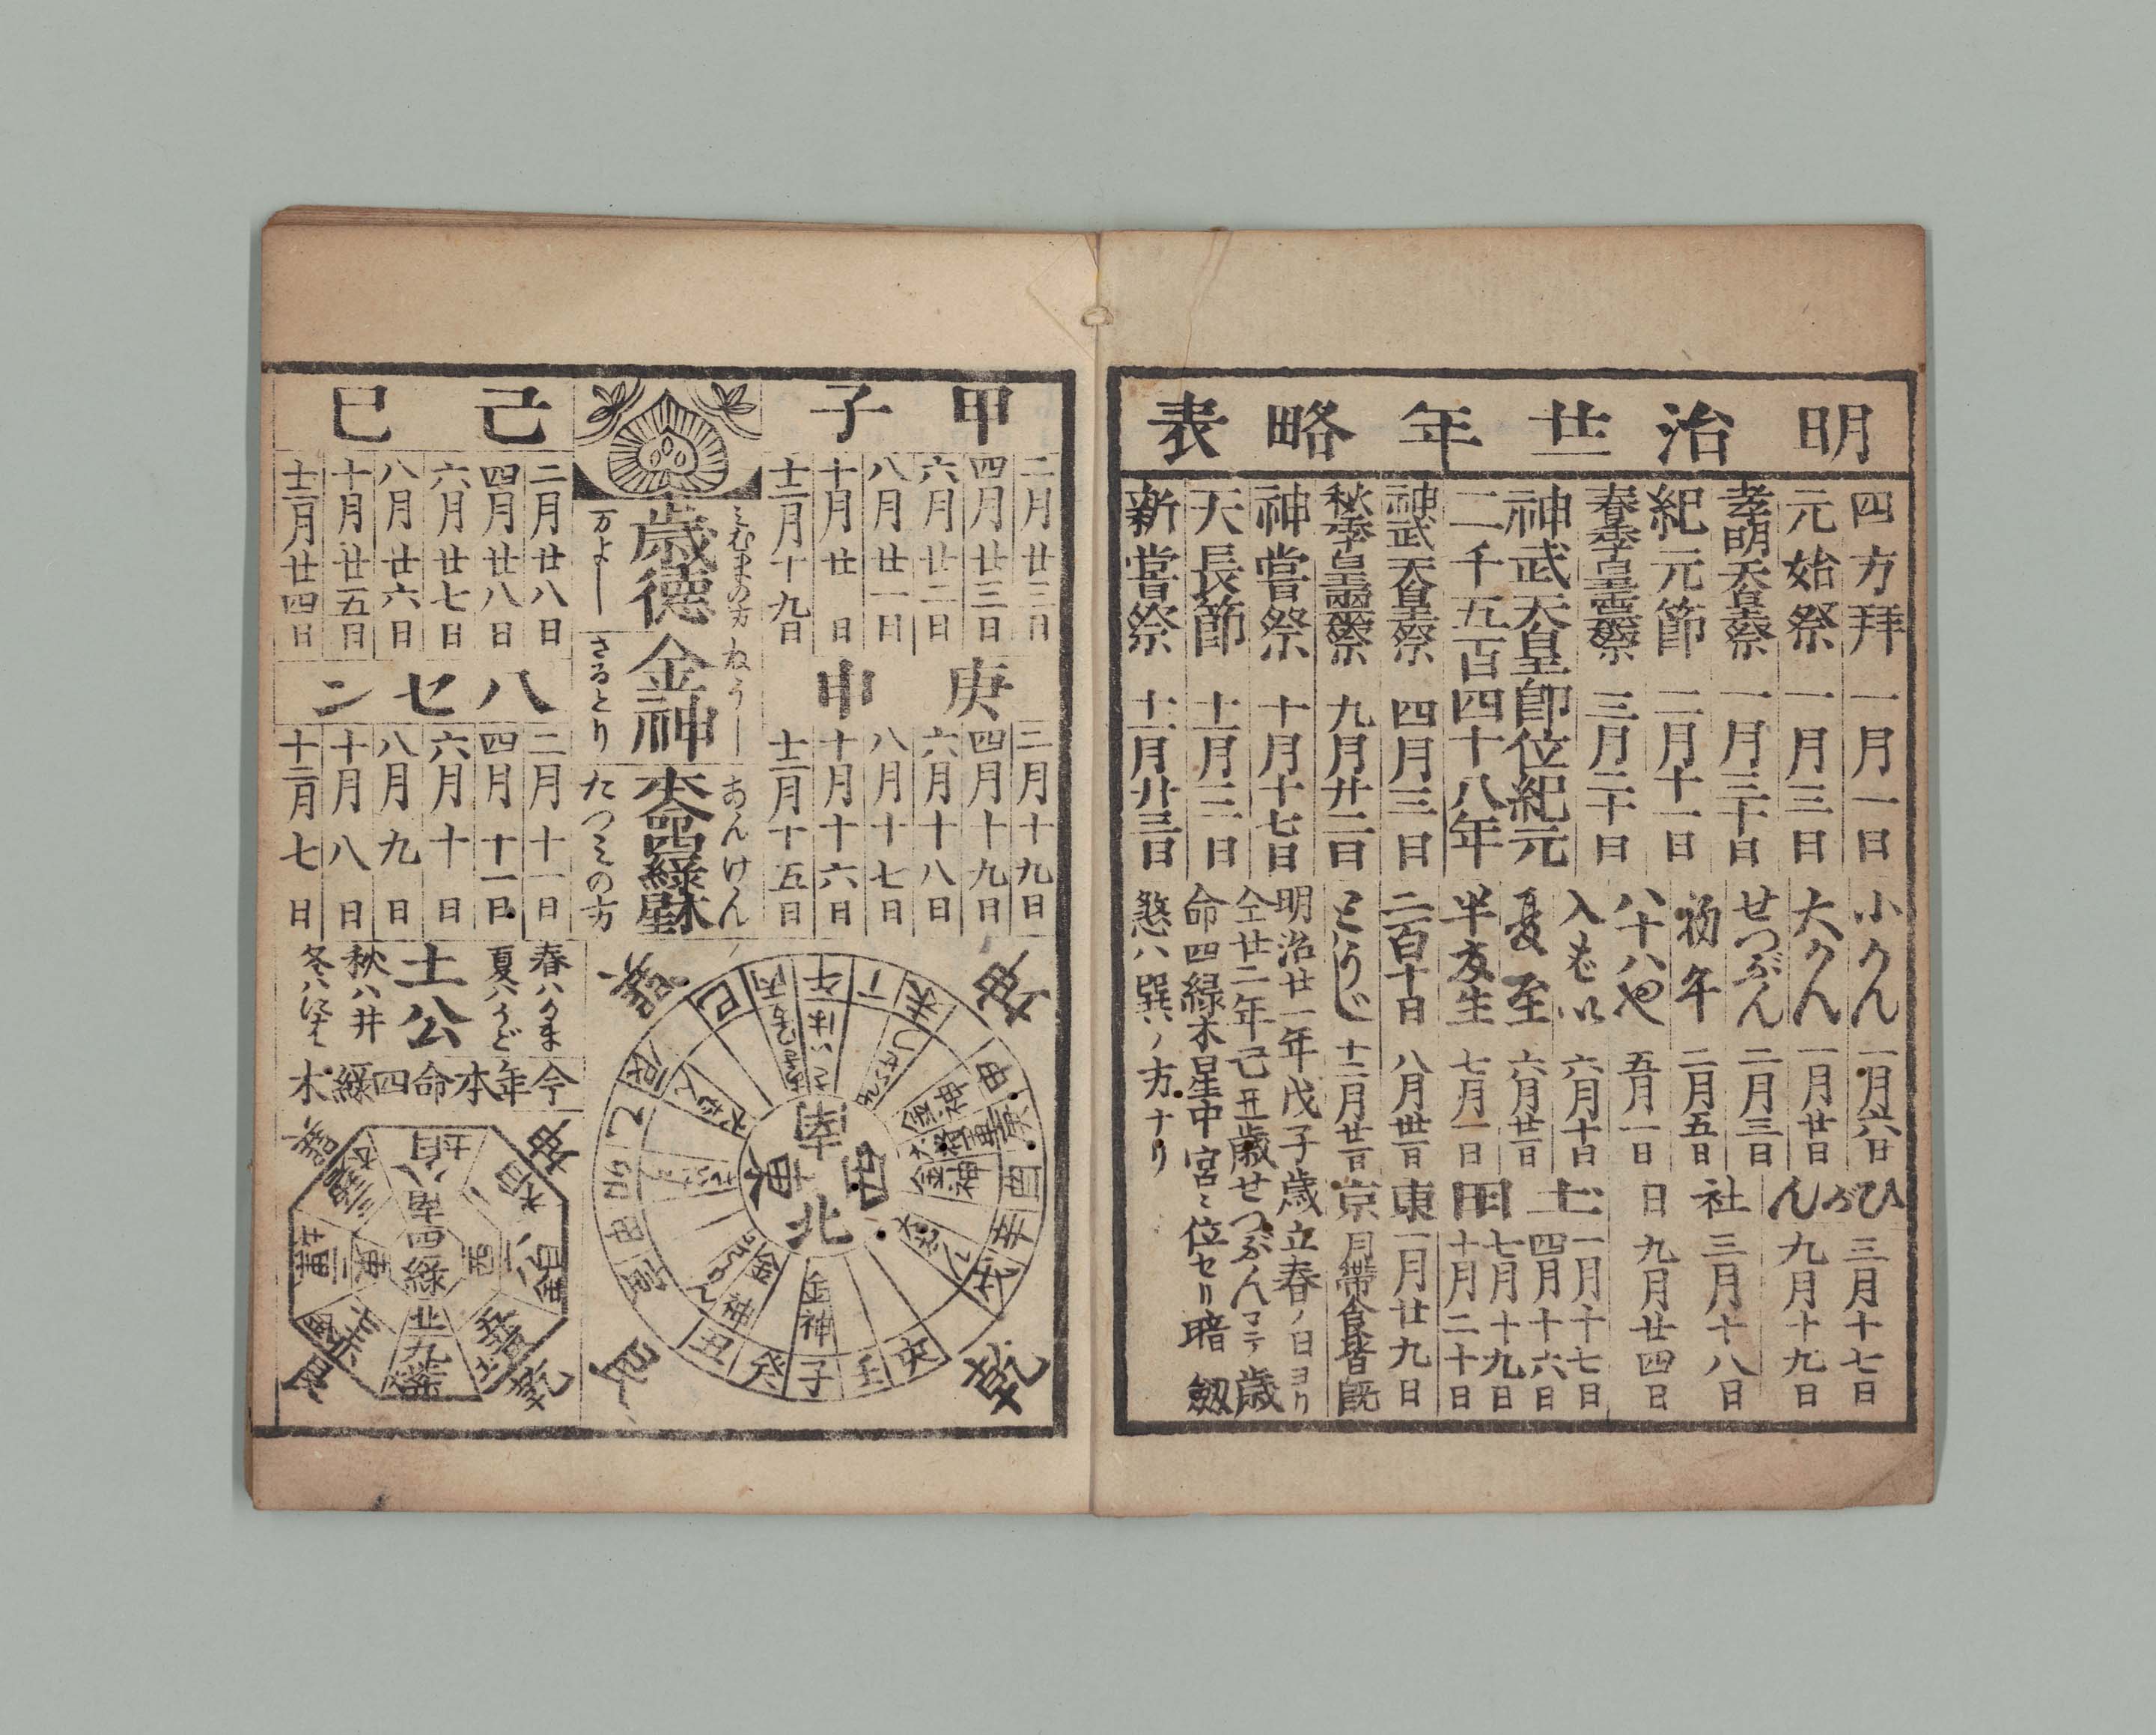 明治廿一年略表
四方拜 一月一日
元始祭 一月三日
孝明天皇祭 一月三十日
紀元節 二月十一日
春季皇靈祭 三月二十日
神武天皇即位紀元
二千五百四十八年
神武天皇祭 四月三日
秋季皇靈祭 九月廿二日
神嘗祭 十月十七日
天長節 十一月三日
新嘗祭 十一月廿三日
小かん 一月六日
大かん 一月廿一日
せつぶん 二月三日
初午 二月五日
八十八や 五月一日
入ばい 六月十日
夏至 六月廿一日
半夏生 七月一日
二百十日 八月卅一日
とうじ 十二月廿一日
明治廿一年戊子歳立春ノ日ヨリ
仝廿二年己丑歳せつぶんマテ歳
命四緑木星中宮ニ位セリ暗劔
煞ハ巽ノ方ナリ
ひがん 三月十七日
九月十九日
社日 三月十八日
九月廿四日
土用 一月十七日
四月十六日
七月十九日
十月二十日
東京 一月廿九日
月帶食皆既
甲子
二月廿三日
四月廿三日
六月廿二日
八月廿一日
十月廿日
十二月十九日
庚申
二月十九日
四月十九日
六月十八日
八月十七日
十月十六日
十二月十五日
歳德
みむまの方
万よし
金神
ねうし
さるとり
本命四緑木星
あんけん
たつみの方
己巳
二月廿八日
四月廿八日
六月廿七日
八月廿六日
十月廿五日
十二月廿四日
八セン
二月十一日
四月十一日
六月十日
八月九日
十月八日
十二月七日
土公
春ハかま
夏ハかど
秋ハ井
冬ハにわ
今年本命四緑木
坤
乾
艮
巽
巳
丙
午
丁
未
申
庚
酉
辛
戌
亥
壬
子
癸
丑
寅
甲
卯
乙
辰
南
西
北
東
金神
金神
金神
金神
坤
乾
艮
巽
南
西
北
東
四緑
九紫